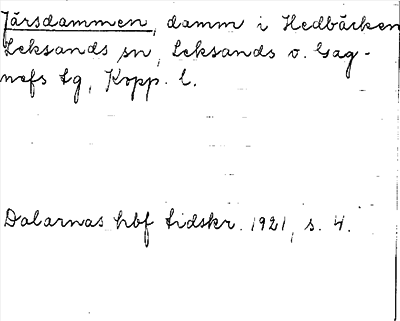 Järsdammen, damm i Hedbäcken
Leksands sn, Leksands o. Gag-
nefs tg, Kopp. l.
Dalarnas hbf tidskr. 1921, s. 4.